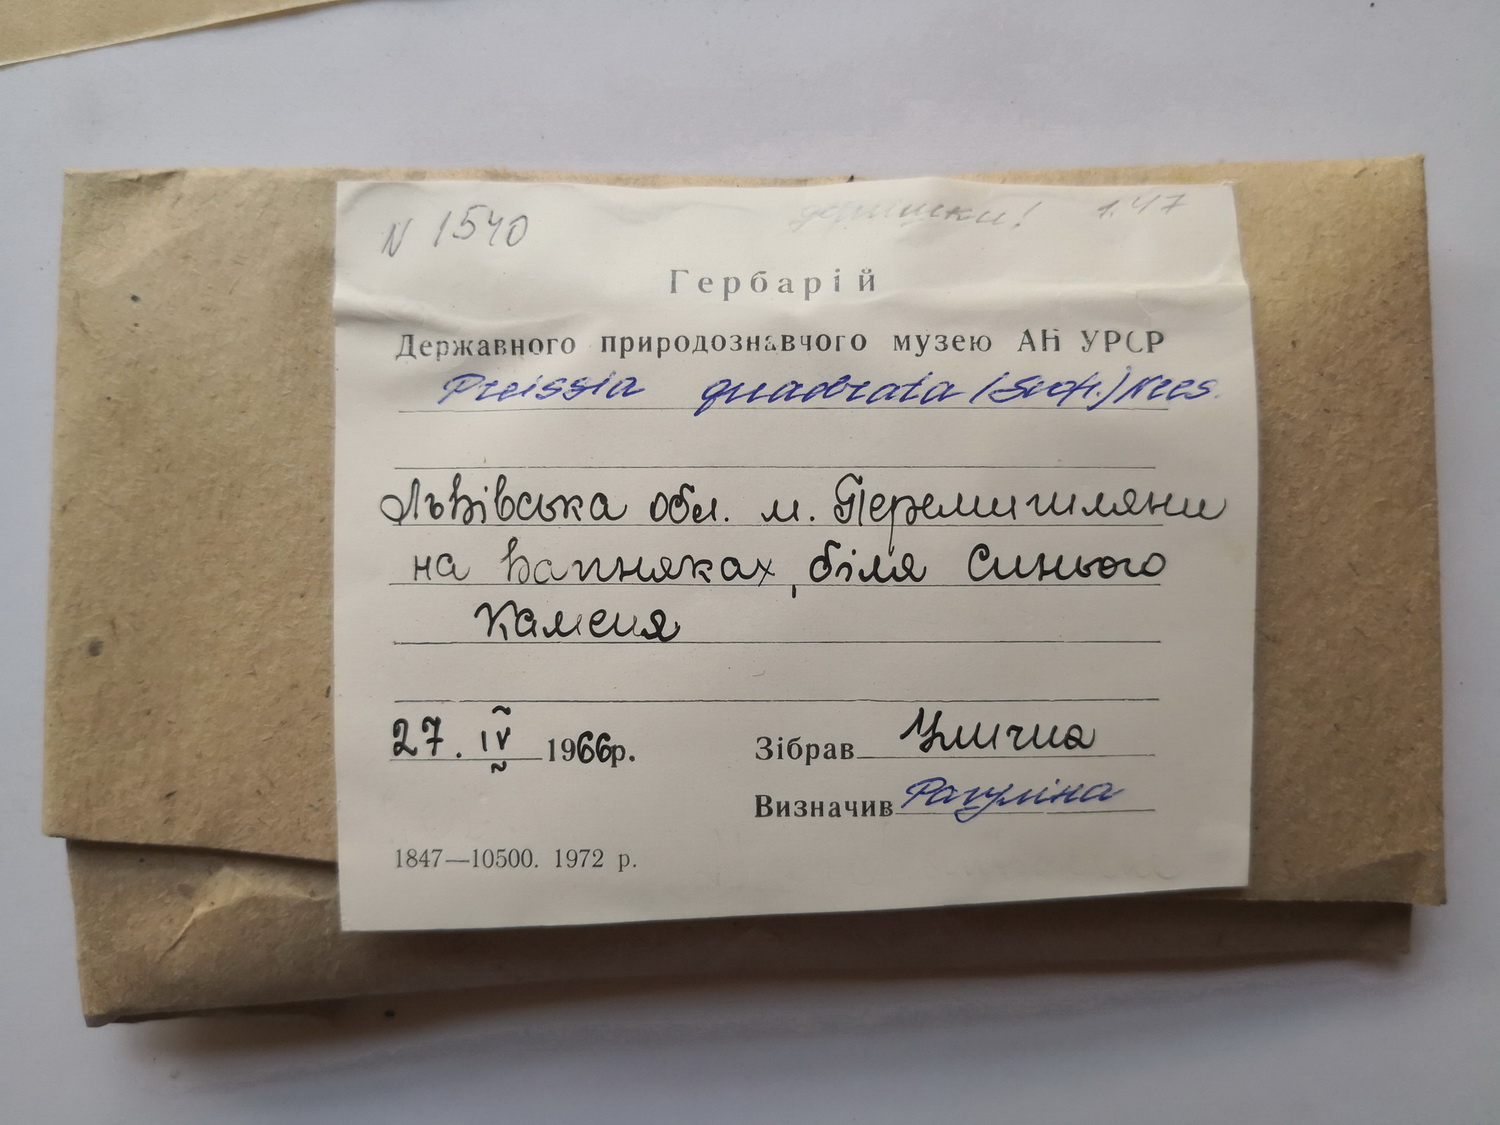 N 1540 1.47
Гербарій
Державного природознавчого музею АН УРСР
Preissia quadrata (Scop.) Nees.
Львівська обл. м. Перемишляни
на вапняках, біля Синього
Каменя
27. IV 1966р. Зібрав Улична
Визначив Рагуліна
1847—10500. 1972 р.